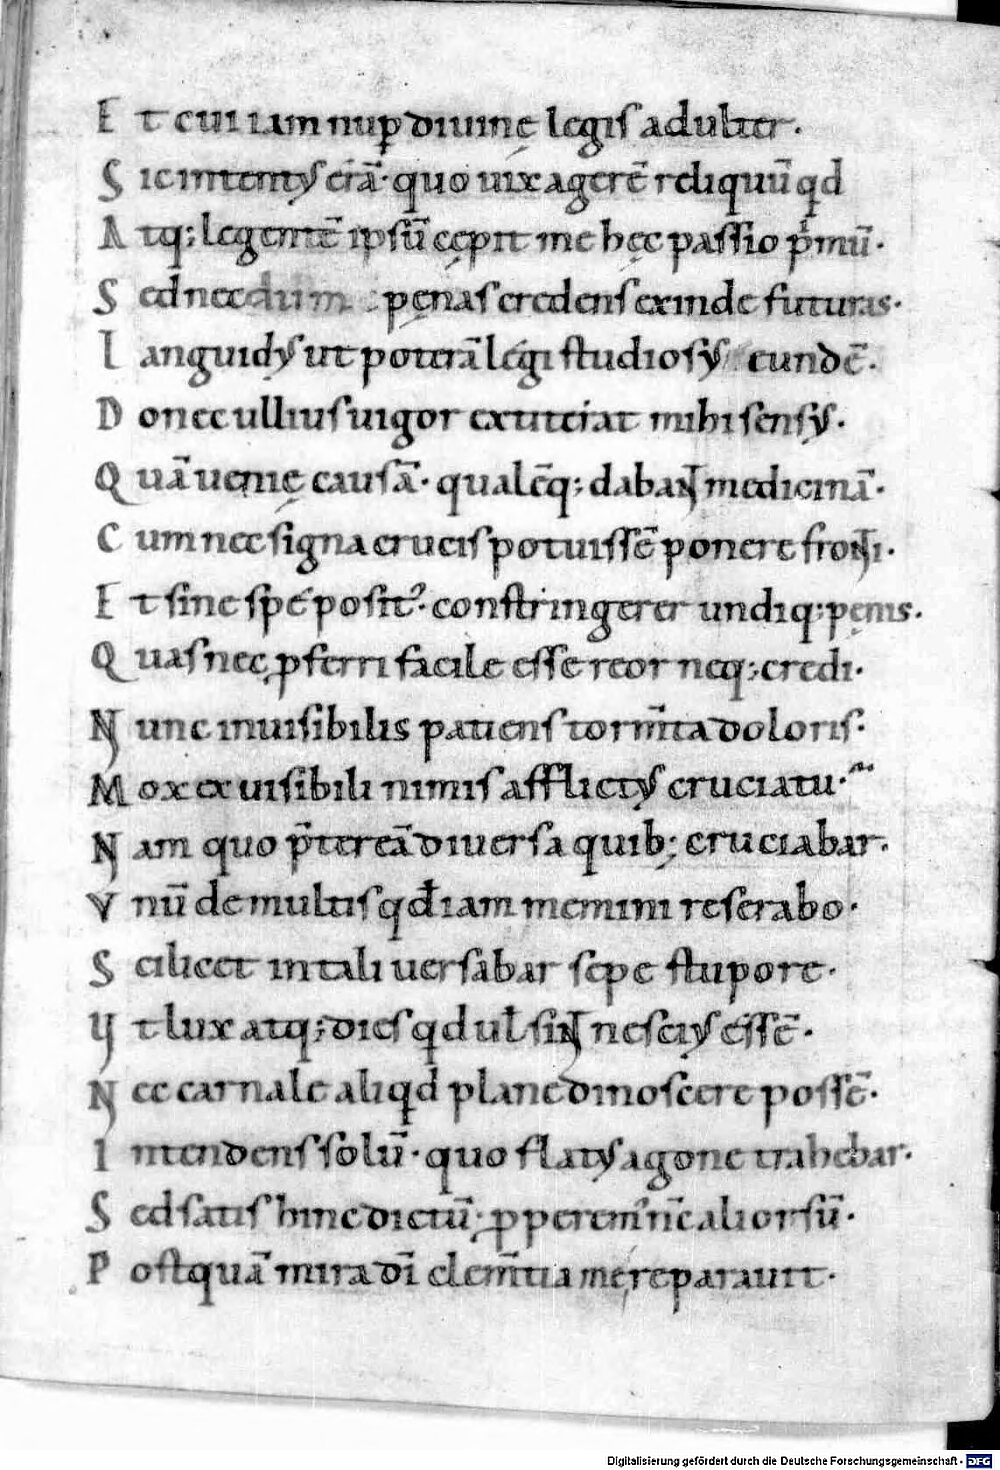 Et cui iam nup̱ diuinę legis adulter.
Sic intentꝰ erā· quo uix agerē reliquū qd
Atq; legentē ipsū cępit me hęc passio pͥmū·
Sed nec dum pęnas credens exinde futuras·
Languidꝰ ut poterā legi studiosꝰ eundē·
Donec ullius uigor extitiat mihi sensꝰ·
Quā uenię causā· qualēq; dabant medicinā·
Cum nec signa crucis potuissē ponere fronti·
Et sine spe positꝰ· constringerer undiq; pęnis·
Quas nec ꝑferri facile esse reor neq; credi·
Nunc inuisibilis patiens torm̄ta doloris·
Mox ex uisibili nimis afflictꝰ cruciatu·
Nam quo p̄tereā diuersa quib; cruciabar·
Vnū de multis qđ iam memini reserabo·
Scilicet in tali uersabar sepe stupore·
Vt lux atq; dies qd uł sint nesciꝰ essē·
Nec carnale aliqd plane dinoscere possē·
Intendens solū· quo flatꝰ agone trahebar·
Sed satis hinc dictū· ꝓperem' nc̄ aliorsū·
Postquā mira dī clem̄tia me reparauit·
Digitalisierung gefördert durch die Deutsche Forschungsgemeinschaft - DFG